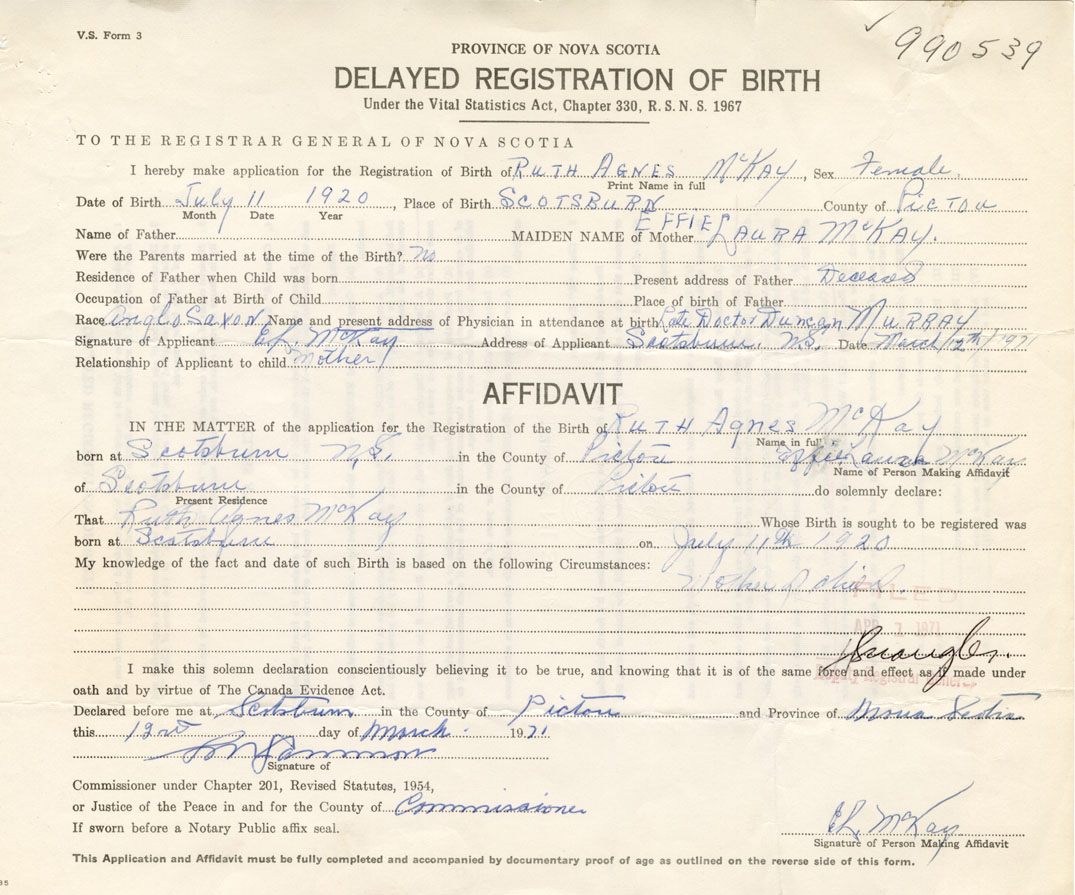 V.S. Form 3
990539
PROVINCE OF NOVA SCOTIA
DELAYED REGISTRATION OF BIRTH
Under the Vital Statistics Act, Chapter 330, R.S.N.S. 1967
TO THE REGISTRAR GENERAL OF NOVA SCOTIA
I hereby make application for the Registration of Birth of RUTH AGNES McKAY, Sex Female.
Print Name in full
Date of Birth July 11 1920, Place of Birth SCOTSBURN County of PICTOU
Month Date Year
EFFIE
Name of Father MAIDEN NAME of Mother LAURA McKAY.
Were the Parents married at the time of the Birth? No
Residence of Father when Child was born Present address of Father Deceased
Occupation of Father at Birth of Child Place of birth of Father
Race Anglo Saxon Name and present address of Physician in attendance at birth Late Doctor Duncan MURRAY
Signature of Applicant E.L. McKay Address of Applicant Scotsburn. N.S. Date March 12th/1971
Relationship of Applicant to child Mother
AFFIDAVIT
IN THE MATTER of the application for the Registration of the Birth of RUTH Agnes McKay
Name in full
born at Scotsburn N.S. in the County of Pictou Effie Laura McKay
Name of Person Making Affidavit
of Scotsburn in the County of Pictou do solemnly declare:
Present Residence
That Ruth Agnes McKay Whose Birth is sought to be registered was
born at Scotsburn on July 11th 1920
My knowledge of the fact and date of such Birth is based on the following Circumstances:
Mother
FILED
APR 1 1971
I make this solemn declaration conscientiously believing it to be true, and knowing that it is of the same force and effect as if made under
oath and by virtue of The Canada Evidence Act.
Declared before me at Scotsburn in the County of Pictou and Province of Nova Scotia
this day of March. 1971
Signature of
Commissioner under Chapter 201, Revised Statutes, 1954,
or Justice of the Peace in and for the County of Commissioner
If sworn before a Notary Public affix seal.
E.L. McKay
Signature of Person Making Affidavit
This Application and Affidavit must be fully completed and accompanied by documentary proof of age as outlined on the reverse side of this form.